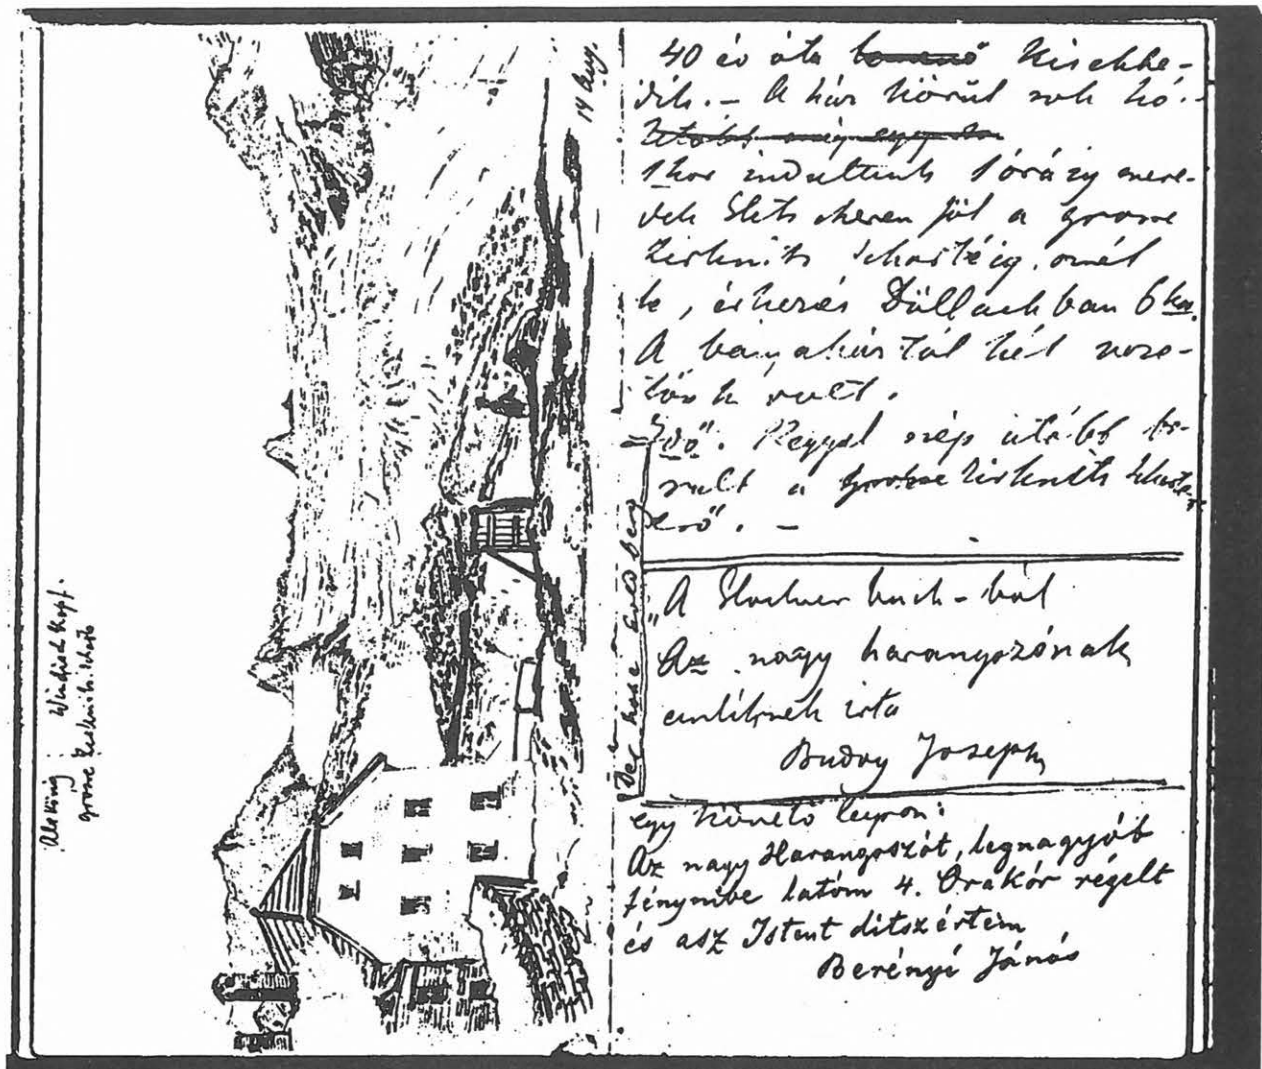 14 Aug.
Alt König Windisch Kopf.
grosse Zirknitz. scharte
40 év óta Kisebbe-
dik. – A ház körül sok hó. –
1 kor indultunk 1 óráig mere-
dek Glets cheren föl a grosse
Zirknitz Schartéig, onnét
le, érkezés Döllach ban 6 kor.
A bányaháztól két veze-
tönk volt.
Idő". Reggel szép utóbb bo-
rult a Zirknitz Scharte
"A Glockner buch-ból
Az nagy harangozónak
emliknek irta
Budoy Joseph
egy követő lapon:
Az nagy Harangoszót, legnagyóbb
fénynibe latóm 4. Orakór régelt
és asz Istent ditszértem
Berényi János